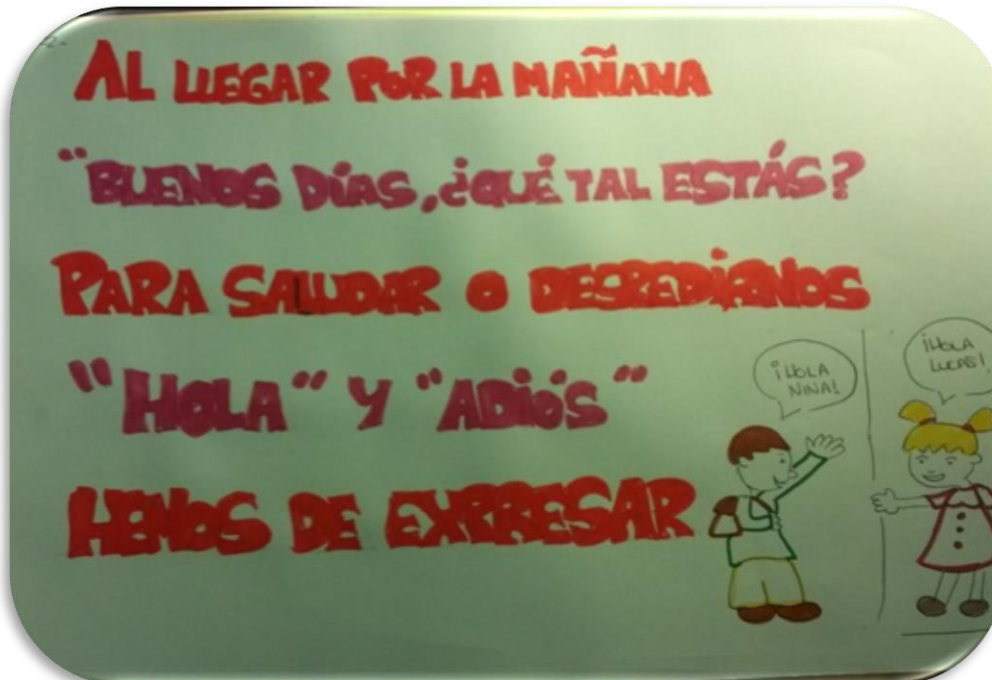 -2-
AL LLEGAR POR LA MAÑANA
"BUENOS DÍAS, ¿QUÉ TAL ESTÁS?
PARA SALUDAR O DESPEDIRNOS
"HOLA" Y "ADIÓS"
HEMOS DE EXPRESAR
¡HOLA
NINA!
¡HOLA
LUCAS!